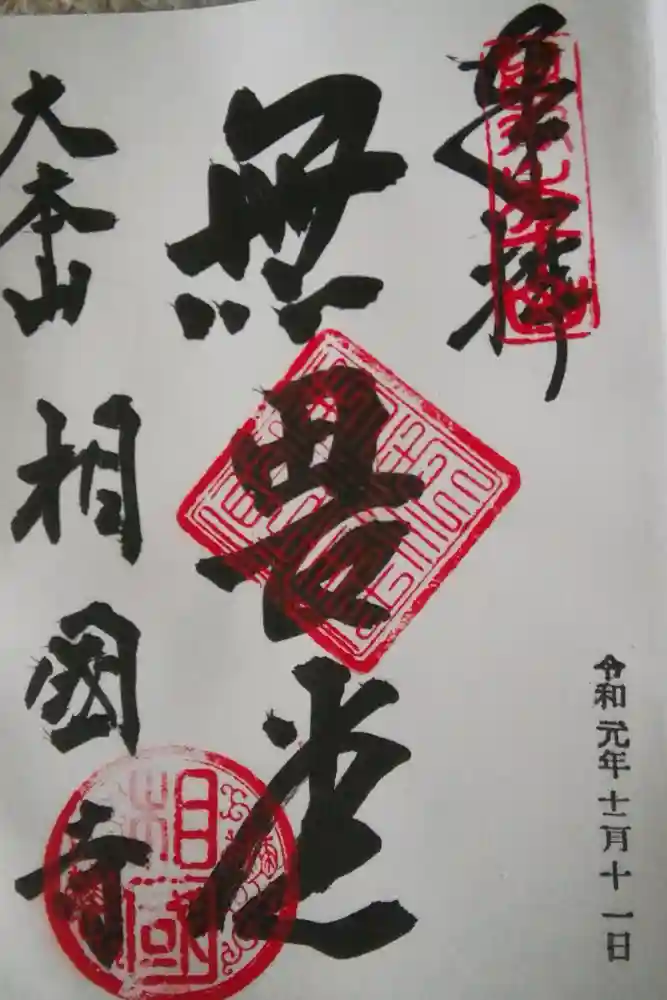 奉拝
令和元年十二月十一日
無畏堂
大本山 相國寺
相國